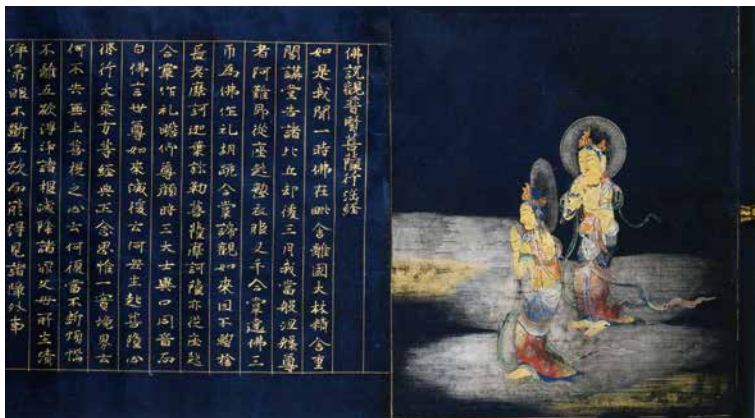 佛說觀普賢菩薩行法經
如是我聞一時佛在毗舍離國大林精舍重
閣講堂告諸比丘却後三月我當般涅槃尊
者阿難即從座起整衣服叉手合掌遶佛三
帀為佛作礼胡跪合掌諦觀如來目不暫捨
長老摩訶迦葉弥勒菩薩摩訶薩亦從座起
合掌作礼瞻仰尊顏時三大士異口同音而
白佛言世尊如來滅後云何衆生起菩薩心
修行大乘方等經典正念思惟一實境界云
何不失無上菩提之心云何復當不断煩惱
不離五欲得淨諸根滅除諸罪父母所生清
淨常眼不斷五欲而能得見諸障外事